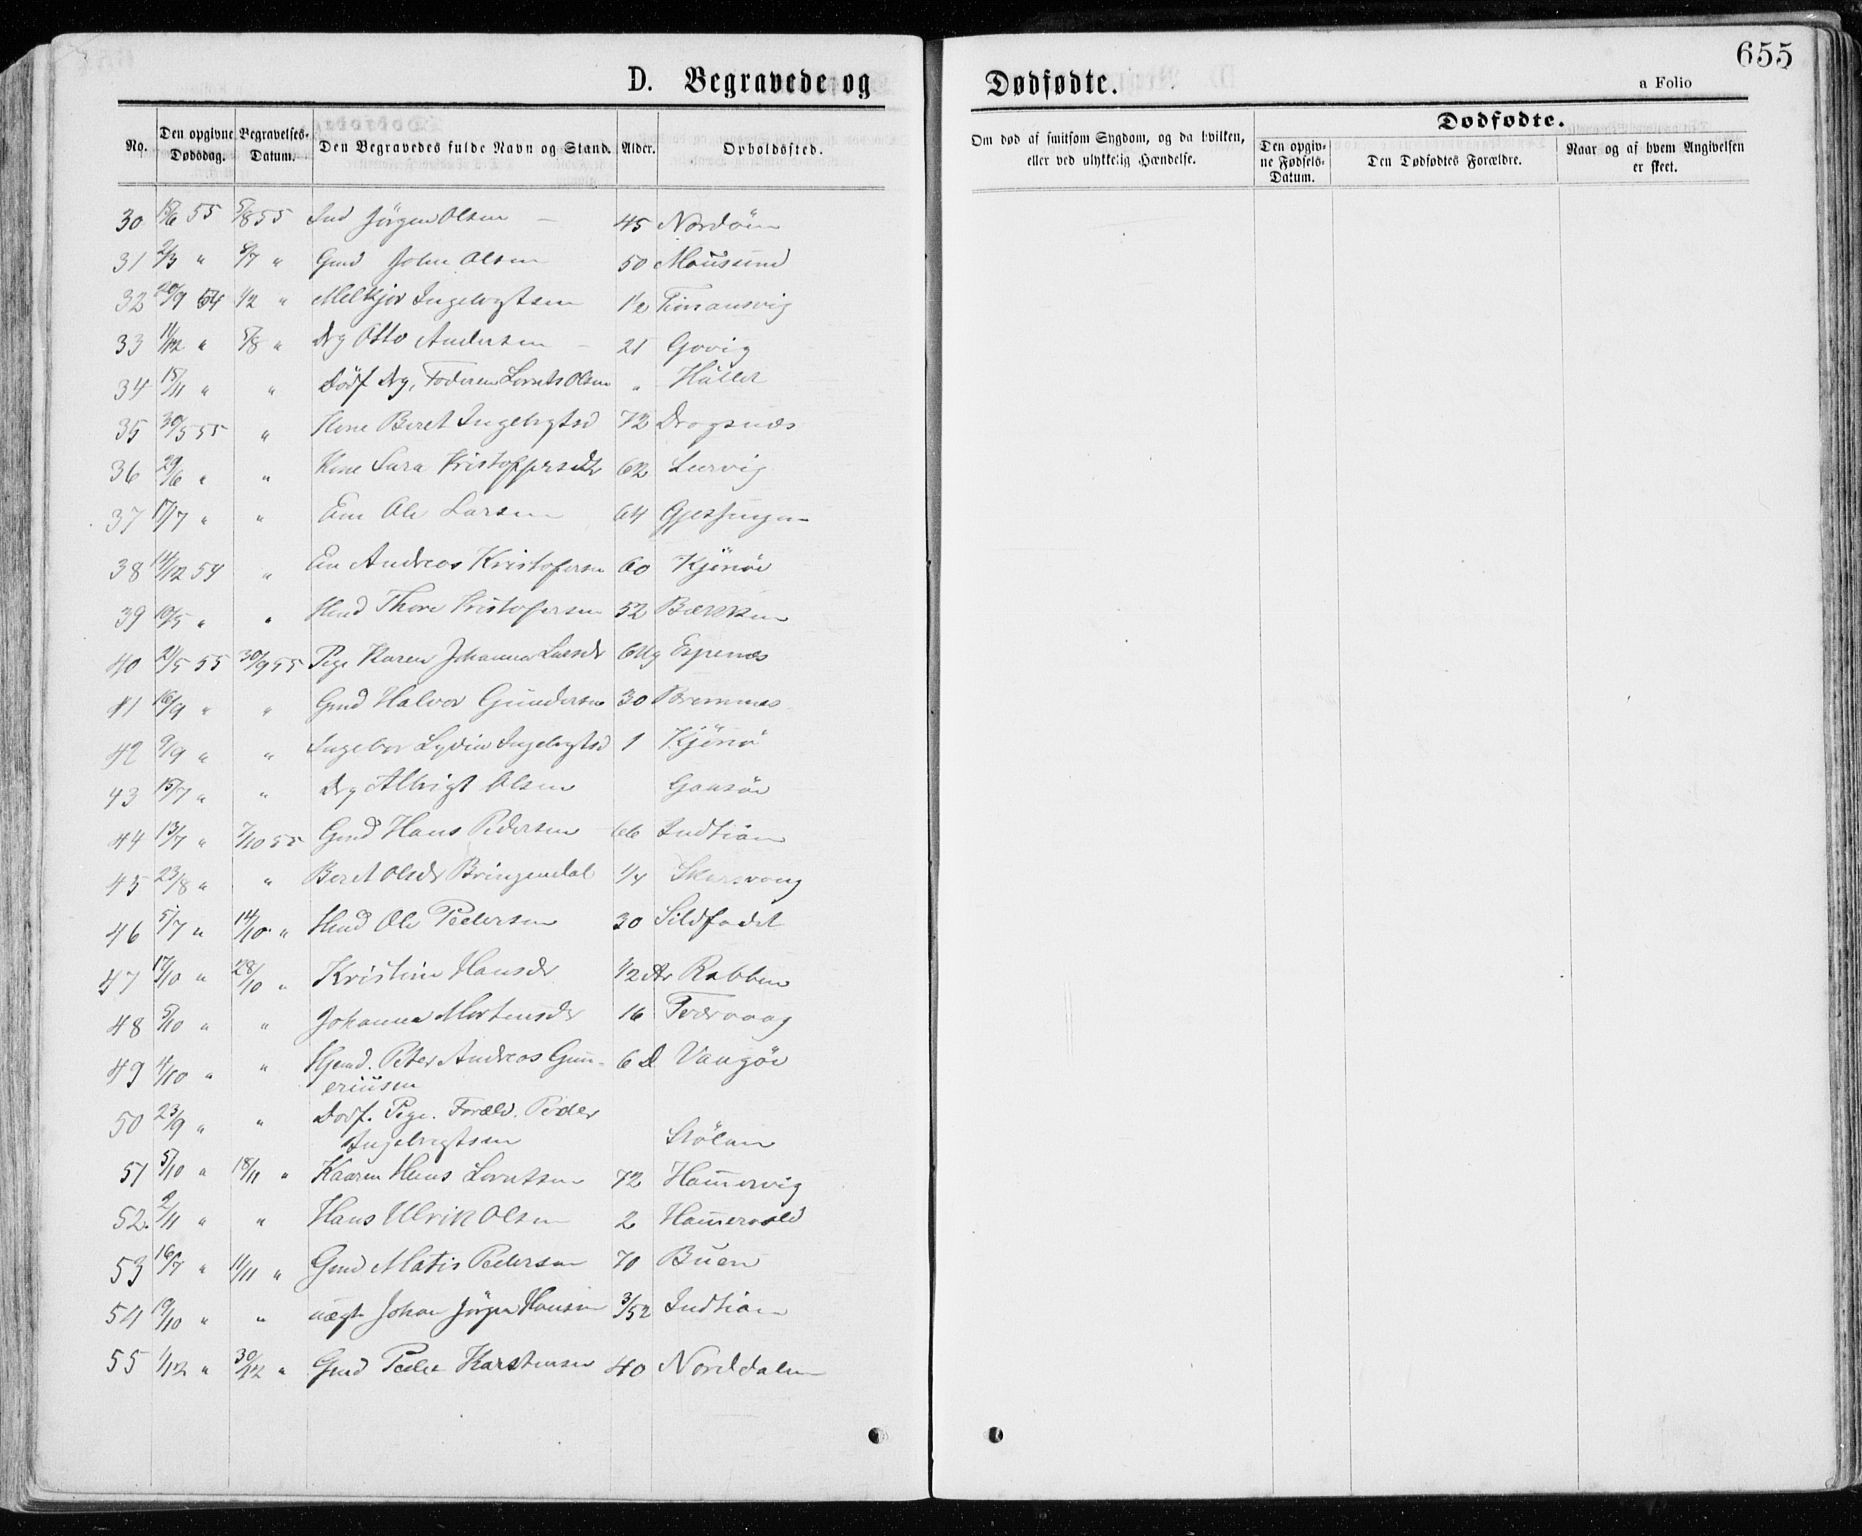 655
D. Begravede og Dødfødte.
a Folio
No. Den opgivne Dødsdag. Begravelses-Datum. Den Begravedes fulde Navn og Stand. Alder. Opholdssted.
Om død af smitsom Sygdom, og da hvilken, eller ved ulykkelig Hændelse.
Dødfødte.
Den opgivne Fødsels-Datum. Den Dødfødtes Forældre. Naar og af hvem Angivelsen er skeet.
30 55 5/8 55 Ind Jörgen Olsen — 45 Nordöen
31 2/3 " 8/7 " Gmd John Olsen 50 Mausund
32 20/9 54 1/2 " Melkjor Ingebrgtsen 1/2
33 11/12 " 5/8 " Drg Otto Andersen — 21 Gjøvig
34 15/11 " " Dödf Drg, Loruts Olsen " Hallet
35 30/5 55 " Kone Beret Ingebrgtsd 72 Dragsnæs
36 29/6 " " Kone Sara Kristoffersdtr 62
37 17/7 " " Em Ole Larsen 64
38 14/12 54 " Em Andreas Kristofersen 60 Kjönöe
39 10/5 " " Hmd Thore Kristofersen 52
40 21/5 55 30/9 55 Pige Karen Johanna Larsdr Espenæs
41 16/9 " " Gmd Halvor Gundersen 30 Bremnes
42 9/9 " " Ingebor Lydia Ingebrgtsd 1 Kjönöe
43 15/7 " " Drg Albrigt Olsen Gaasöe
44 13/7 " 7/10 55 Gmd Hans Pedersen — 66 Indtian
45 23/8 " " Beret Olsdr Bringendal 1/4 Skarsvaag
46 5/7 " 14/10 " Hmd Ole Pedersen 30 Sildfadet
47 17/10 " 28/10 " Kristine Hansdr 1/2 Ar Rabben
48 5/10 " " Johanna Mortensdr 16 Tværvaag
49 4/10 " " Hjemd. Peter Andreas Gun-
eriusen 6 D Vangöe
50 23/9 " " Dödf. Pige. Foræld. Peder
Ingebrigtsen Stölan
51 5/10 " 18/11 " Kaaren Hans Lorntsen 72 Hamervig
52. 2/11 " " Hans Ulrik Olsen 2 Hamervold
53 16/7 " 11/11 " Gmd Matis Pedersen 70 Buen
54 19/10 " " uægt. Johan Jörgen Hansen 3/52 Indtian
55 1/12 " 30/12 " Gmd Peder Karstensen 40 Norddalen